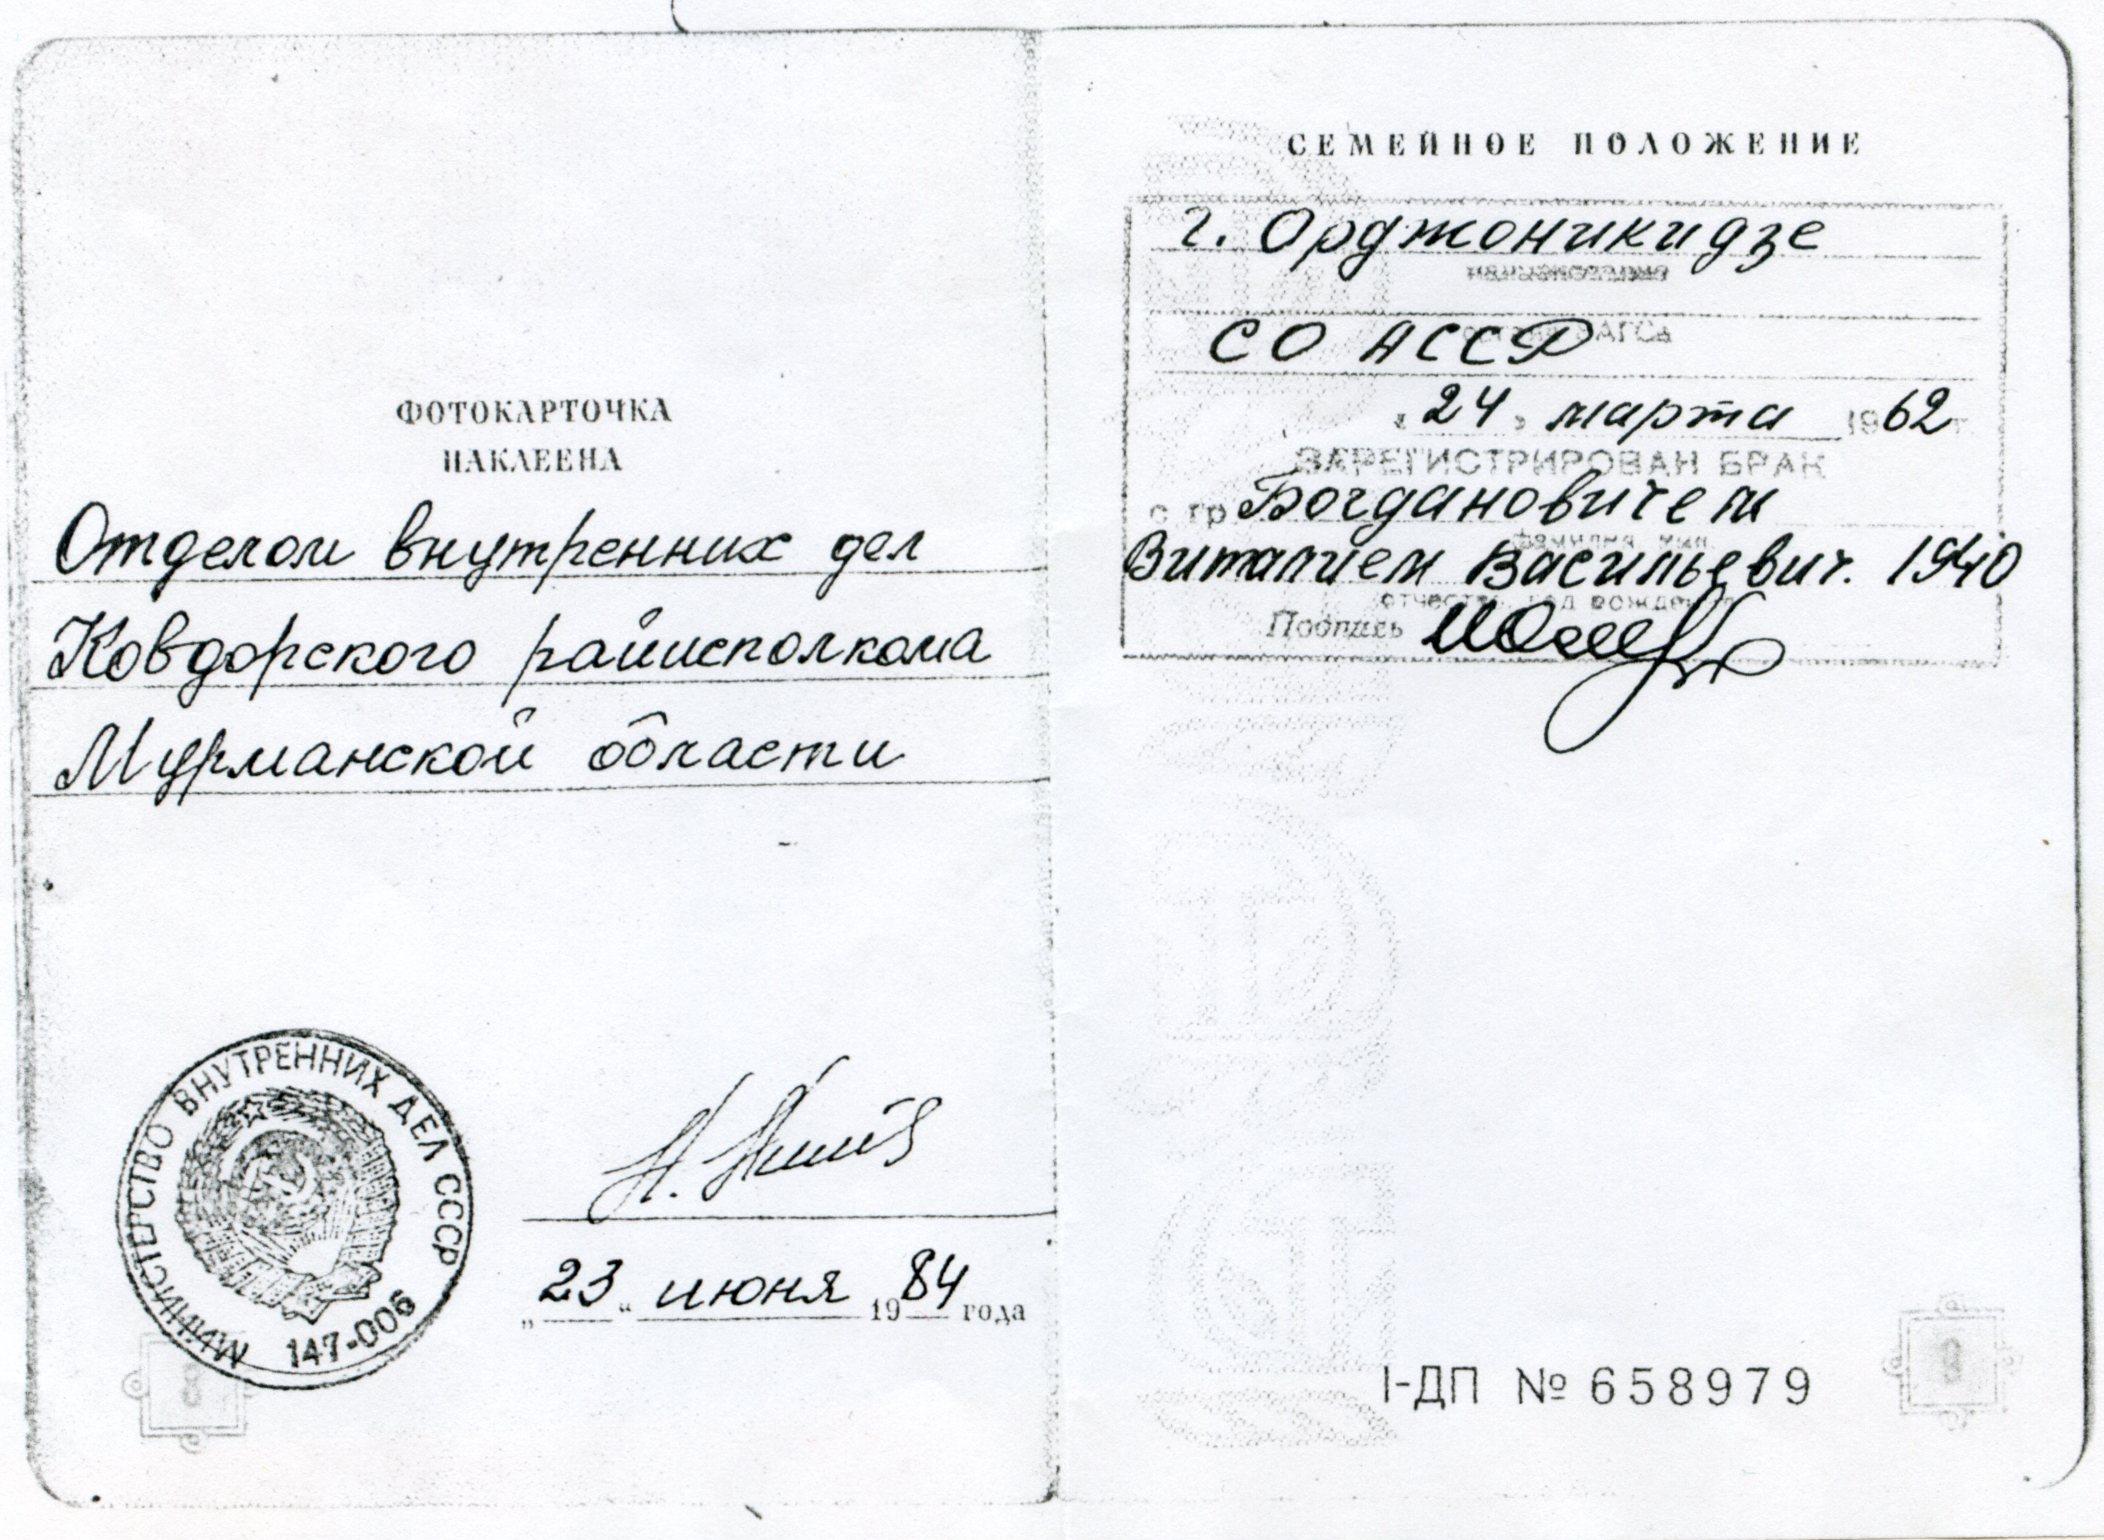 ФОТОКАРТОЧКА
НАКЛЕЕНА
Отделом внутренних дел
Ковдорского райисполкома
Мурманской области
МИНИСТЕРСТВО ВНУТРЕННИХ ДЕЛ СССР
147-006
"23" июня 1984 года
8
СЕМЕЙНОЕ ПОЛОЖЕНИЕ
г. Орджоникидзе
наименование
СО АССР
ЗАГСа
"24" марта 1962 г
ЗАРЕГИСТРИРОВАН БРАК
с гр Богдановичем
фамилия, имя,
Виталием Васильевич. 1940
отчество, год рождения
Подпись
I-ДП № 658979